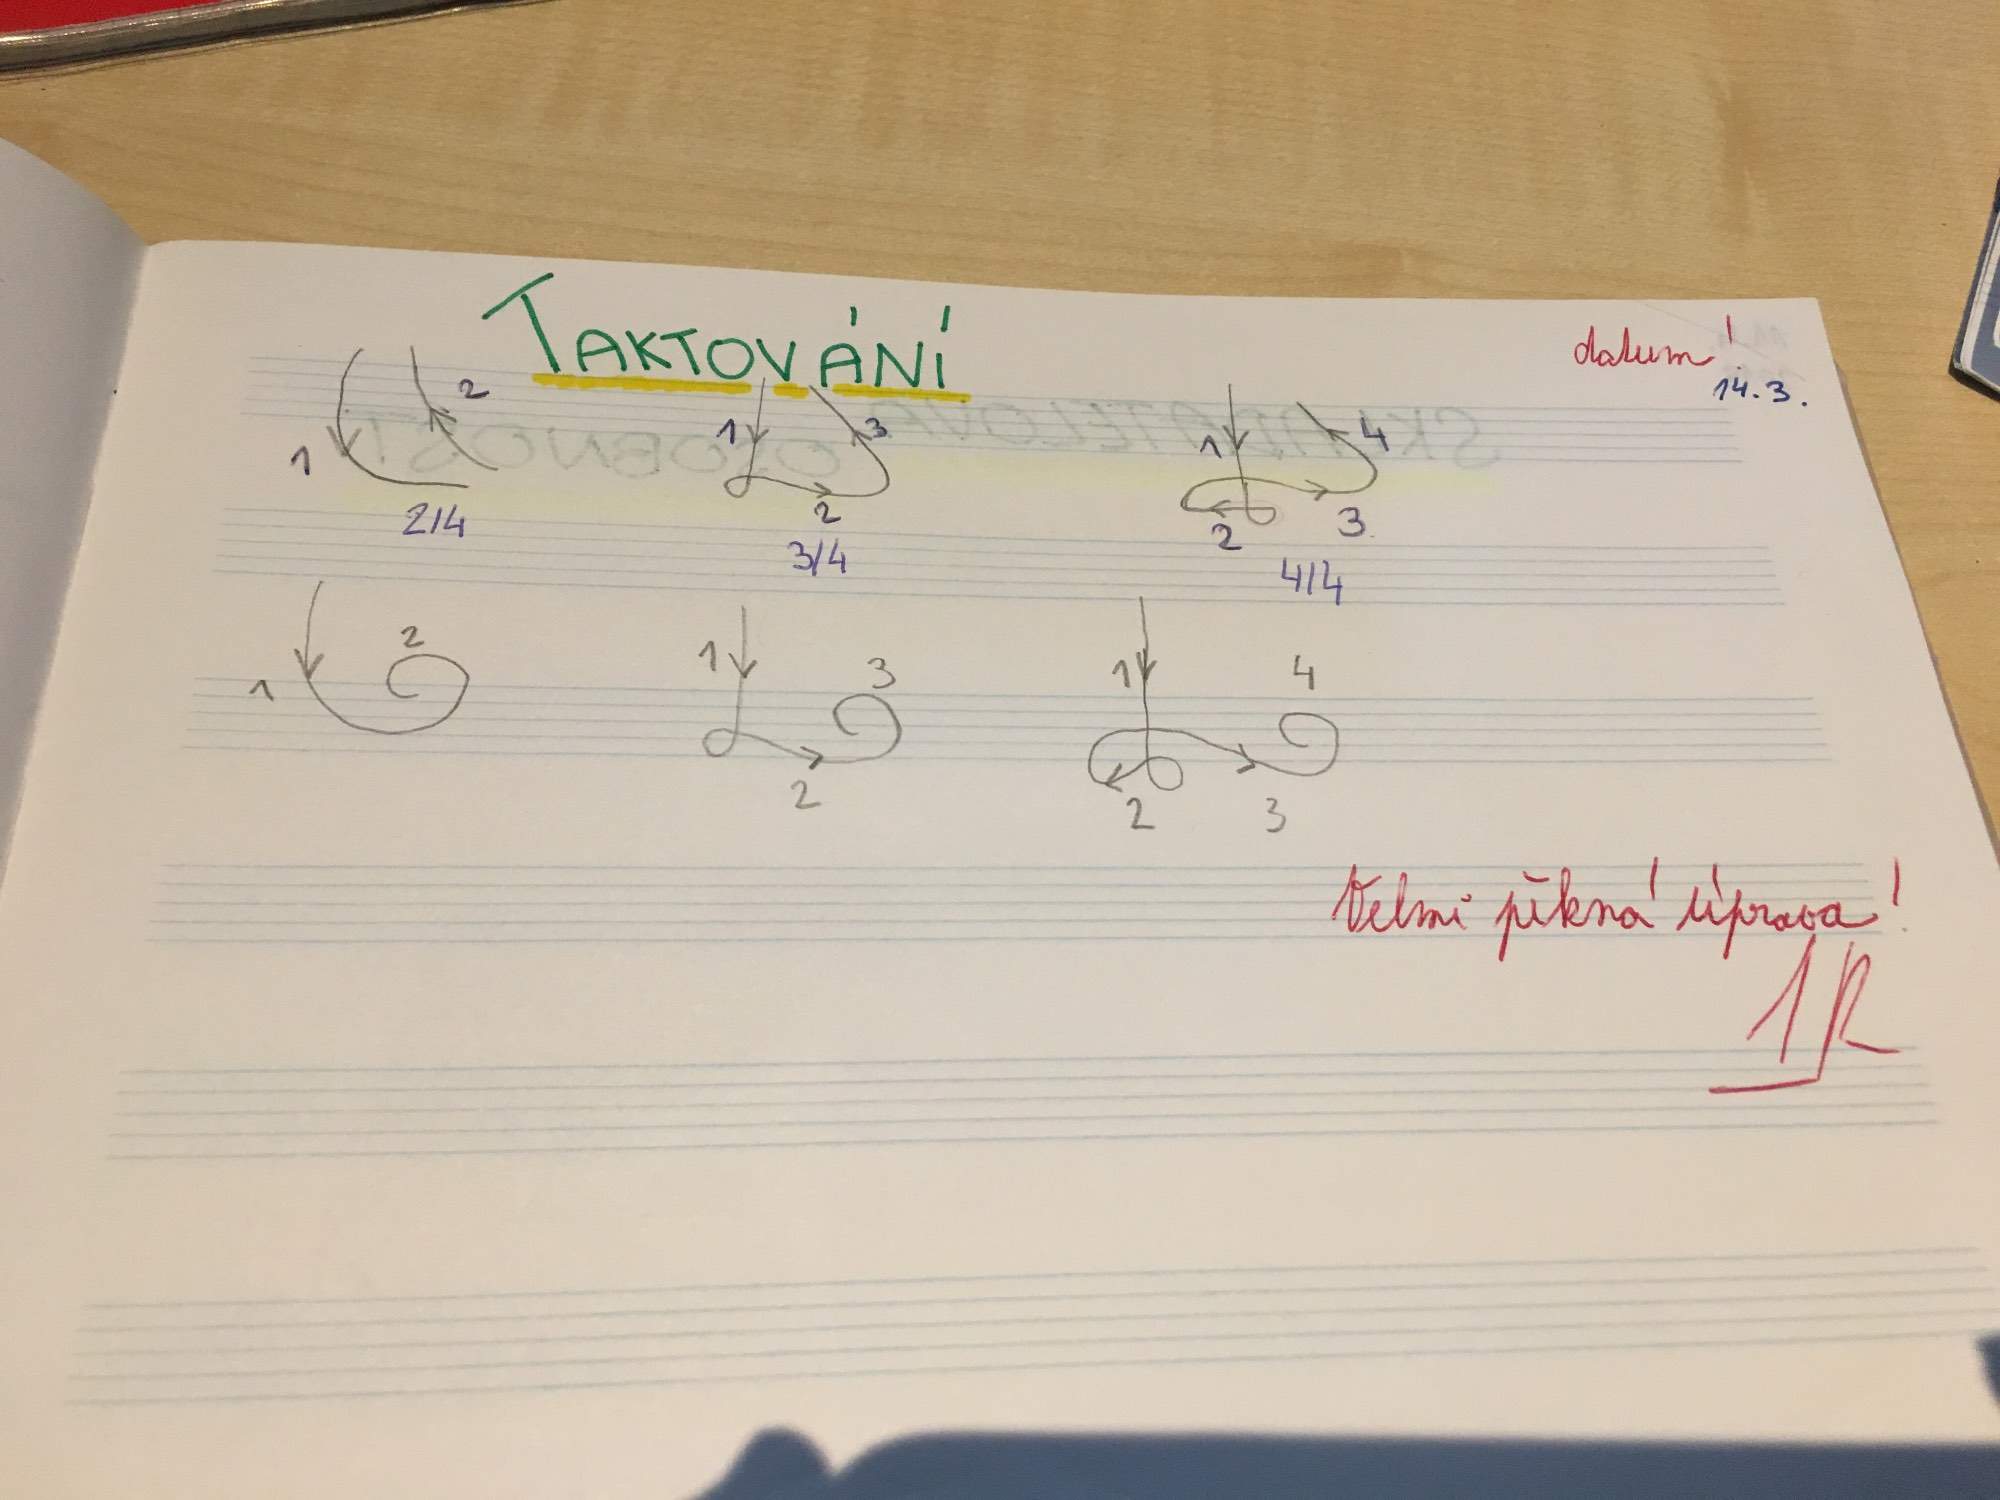 TAKTOVÁNÍ
datum!
14.3.
1 2
2/4
1 2 3
3/4
1 2 3 4
4/4
1 2
1 2 3
1 2 3 4
Velmi pěkná úprava!
1